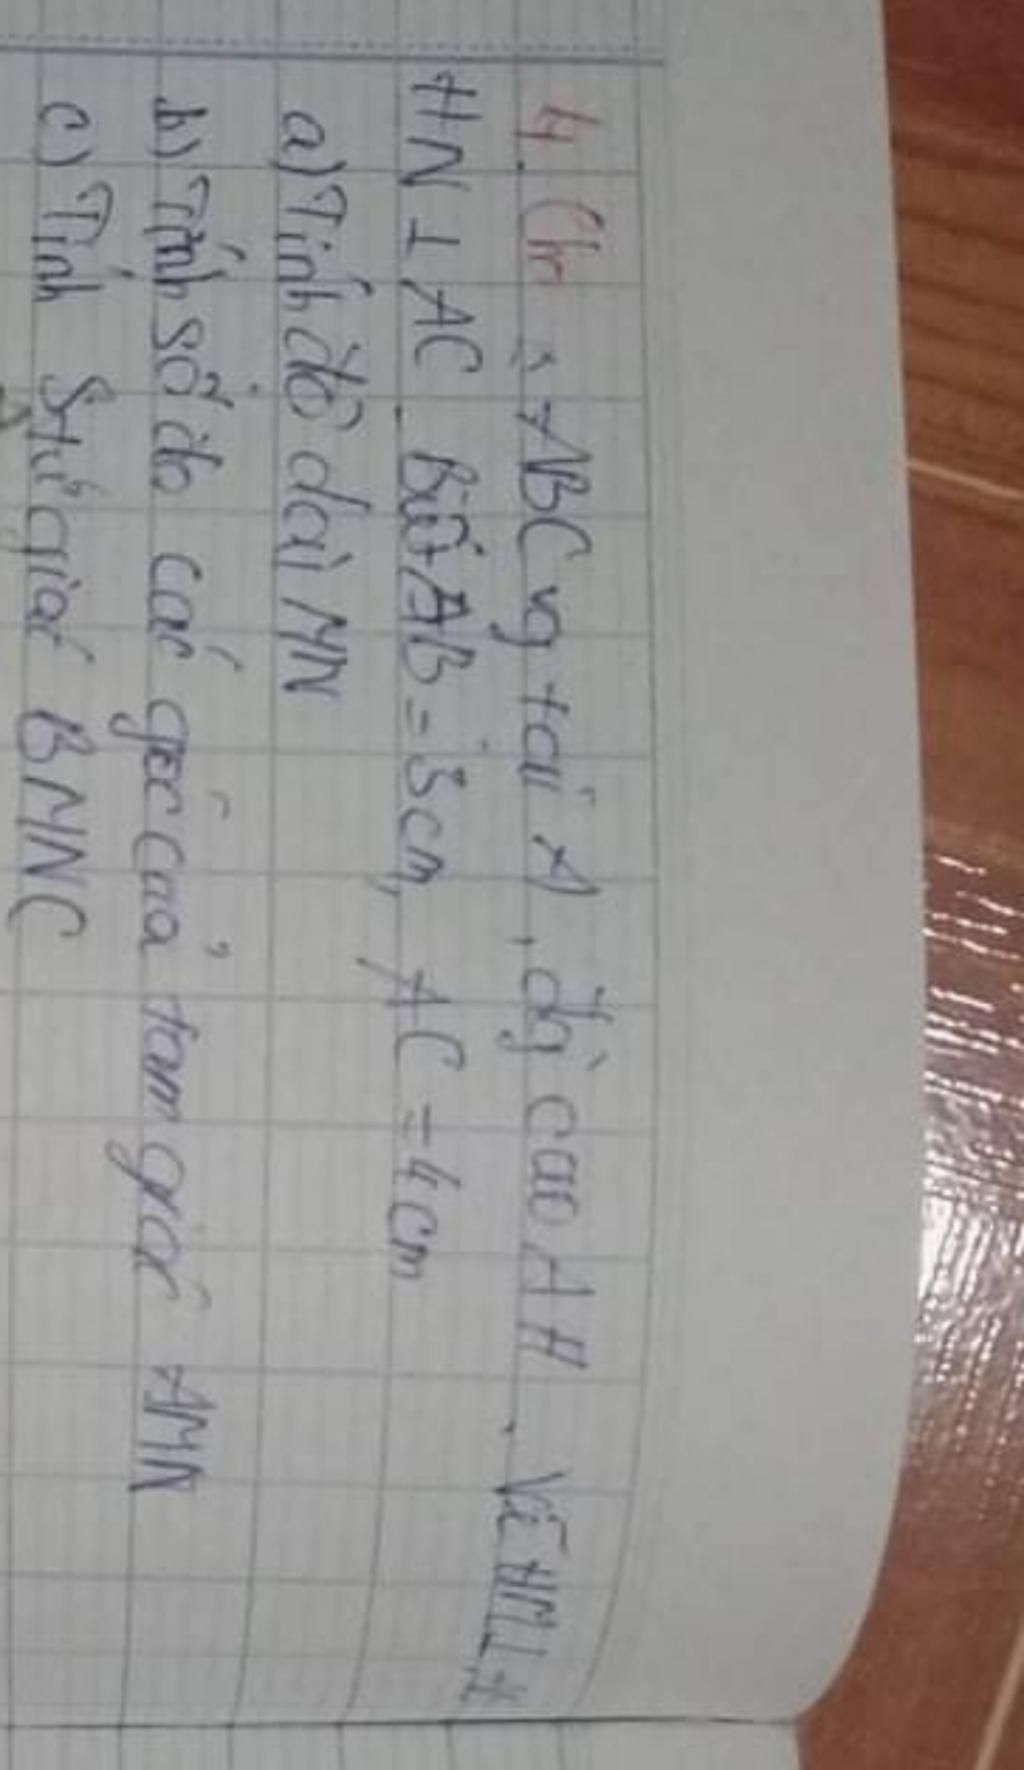 4. Ch △ ABC vg tại A, đg cao AH. Vẽ HM ⊥ A
HN ⊥ AC. Biết AB = 3cm, AC = 4cm
a) Tính độ dài MN
b) Tính số đo các góc của tam giác AMN
c) Tính Stứ giác BMNC